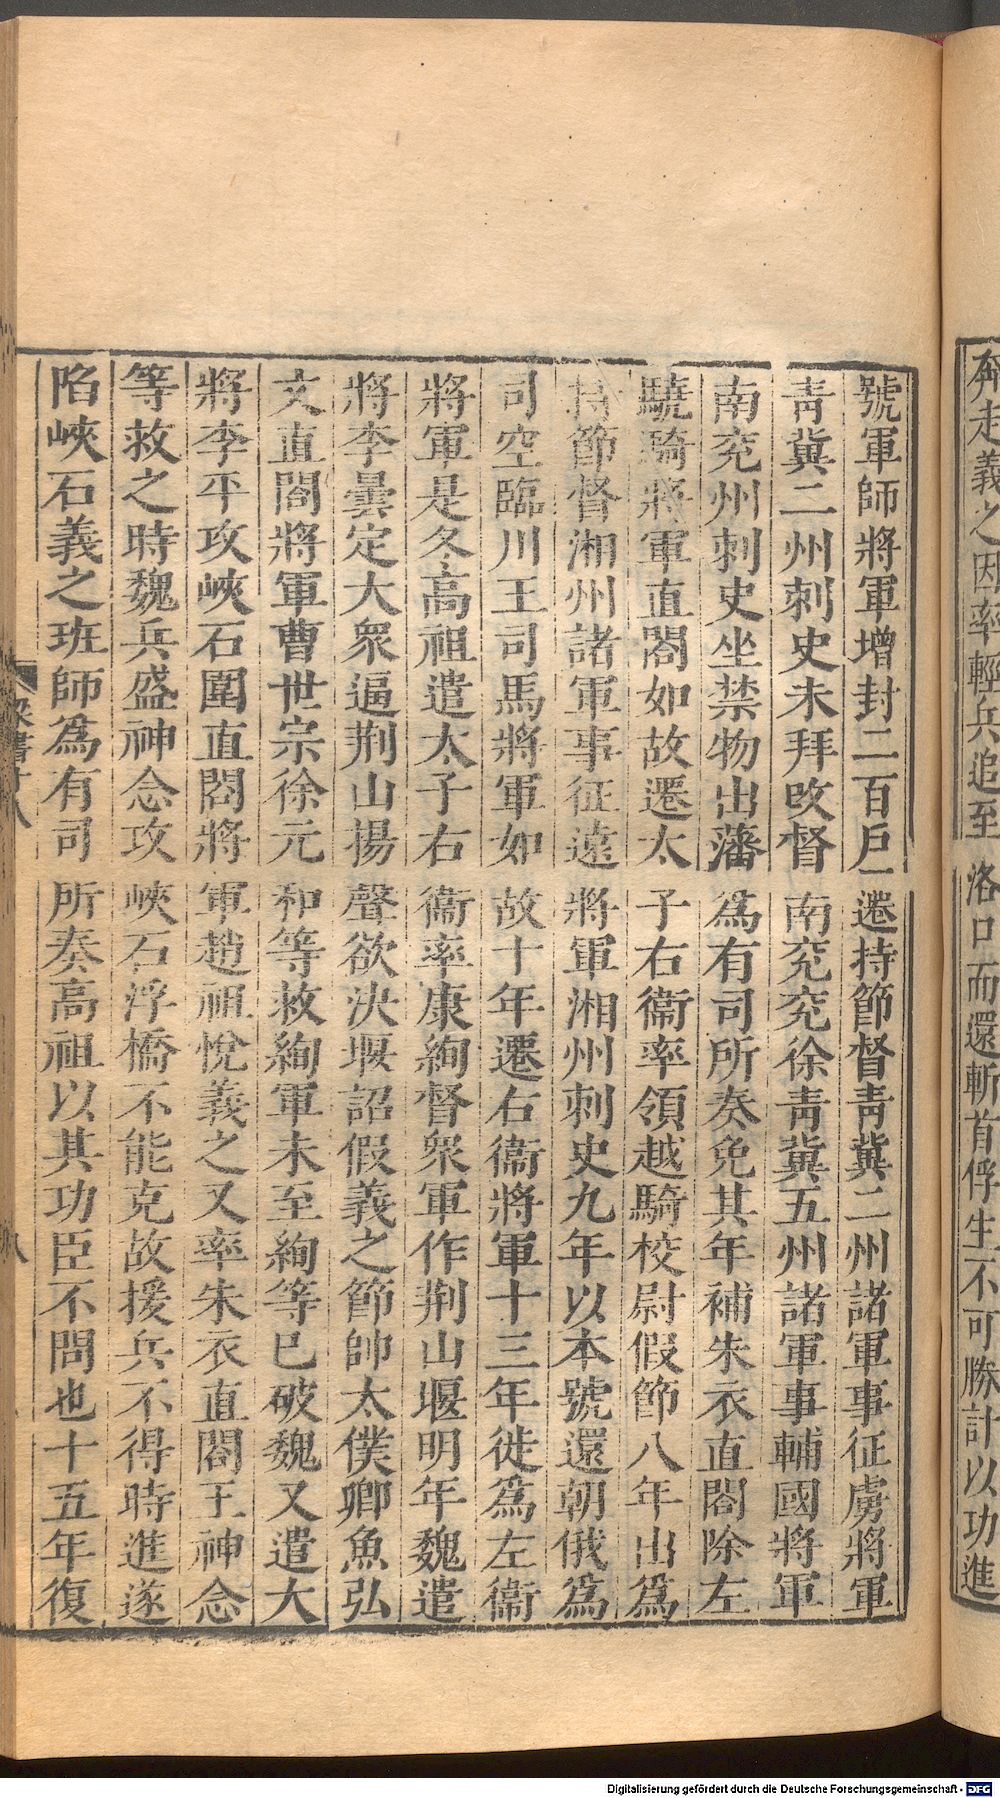 奔走義之因率輕兵追至洛口而還斬首俘生不可勝計以功進
號軍師將軍增封二百戶遷持節督青冀二州諸軍事征虜將軍
青冀二州刺史未拜改督南兗兗徐青冀五州諸軍事輔國將軍
南兗州刺史坐禁物出藩爲有司所奏免其年補朱衣直閤除左
驍騎將軍直閤如故遷太子右衞率領越騎校尉假節八年出爲
持節督湘州諸軍事征遠將軍湘州刺史九年以本號還朝俄爲
司空臨川王司馬將軍如故十年遷右衞將軍十三年徙爲左衞
將軍是冬高祖遣太子右衞率康絢督衆軍作荆山堰明年魏遣
將李曇定大衆逼荆山揚聲欲決堰詔假義之節帥太僕卿魚弘
文直閤將軍曹世宗徐元和等救絢軍未至絢等已破魏又遣大
將李平攻峽石圍直閤將軍趙祖悅義之又率朱衣直閤王神念
等救之時魏兵盛神念攻峽石浮橋不能克故援兵不得時進遂
陷峽石義之班師爲有司所奏高祖以其功臣不問也十五年復
梁書十八
八
Digitalisierung gefördert durch die Deutsche Forschungsgemeinschaft - DFG